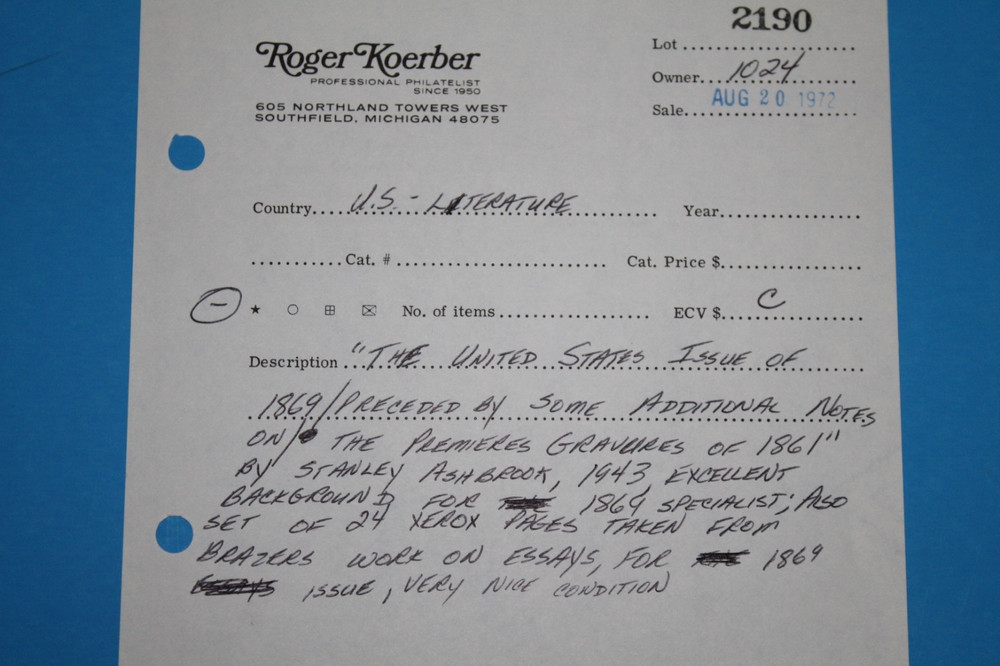 2190
Roger Koerber
PROFESSIONAL PHILATELIST
SINCE 1950
605 NORTHLAND TOWERS WEST
SOUTHFIELD, MICHIGAN 48075
Lot
Owner 1024
Sale AUG 20 1972
Country U.S. - LITERATURE Year
Cat. # Cat. Price $
No. of items ECV $ C
Description "THE UNITED STATES ISSUE OF
1869/PRECEDED BY SOME ADDITIONAL NOTES
ON/ THE PREMIERES GRAVURES OF 1861"
BY STANLEY ASHBROOK, 1943, EXCELLENT
BACKGROUND FOR 1869 SPECIALIST; ALSO
SET OF 24 XEROX PAGES TAKEN FROM
BRAZERS WORK ON ESSAYS, FOR 1869
ISSUE, VERY NICE CONDITION